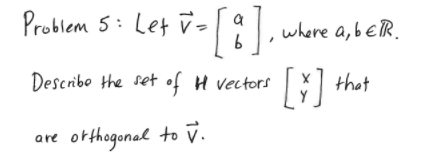 Problem 5: Let v⃗ = [a b], where a, b ∈ ℝ.
Describe the set of H vectors [x y] that
are orthogonal to v⃗.